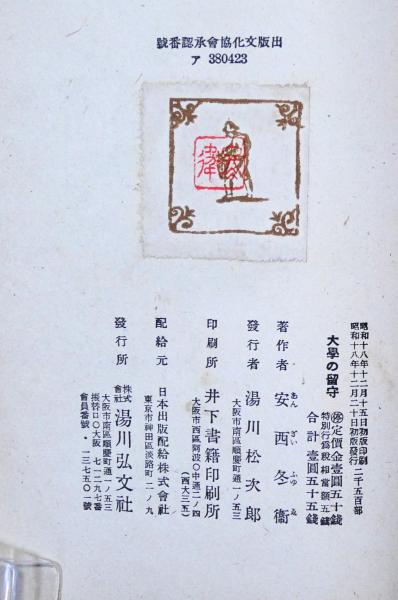 出版文化協會承認番號
ア 380423
昭和十八年十二月十五日初版印刷
昭和十八年十二月二十日初版發行 二千五百部
大學の留守
定價金壹圓五十錢
特別行爲税相當額五錢
合計壹圓五十五錢
著作者 安西冬衞
あん ざい ふゆ ゑ
發行者 湯川松次郎
大阪市南區順慶町通一ノ五三
印刷所 井下書籍印刷所
大阪市西區阿波〇中通二ノ四
(西大三五)
配給元 日本出版配給株式會社
東京市神田區淡路町二ノ九
發行所 株式會社 湯川弘文社
大阪市南區順慶町通一ノ五三
振替口〇大阪 七一二九七番
會員番號・一三七五〇一號